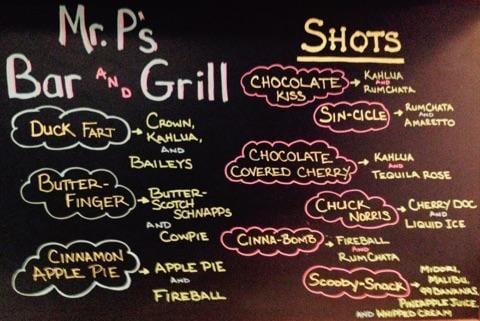 Mr. P's
Bar AND Grill
DUCK FART → CROWN,
KAHLUA,
AND
BAILEYS
BUTTER-
FINGER → BUTTER-
SCOTCH
SCHNAPPS
AND
COWPIE
CINNAMON
APPLE PIE → APPLE PIE
AND
FIREBALL
SHOTS
CHOCOLATE
KISS → KAHLUA
AND
RUMCHATA
SIN-CICLE → RUMCHATA
AND
AMARETTO
CHOCOLATE
COVERED CHERRY → KAHLUA
AND
TEQUILA ROSE
CHUCK
NORRIS → CHERRY DOC
AND
LIQUID ICE
CINNA-BOMB → FIREBALL
AND
RUMCHATA
SCOOBY-SNACK → MIDORI,
MALIBU,
99 BANANAS,
PINEAPPLE JUICE,
AND WHIPPED CREAM